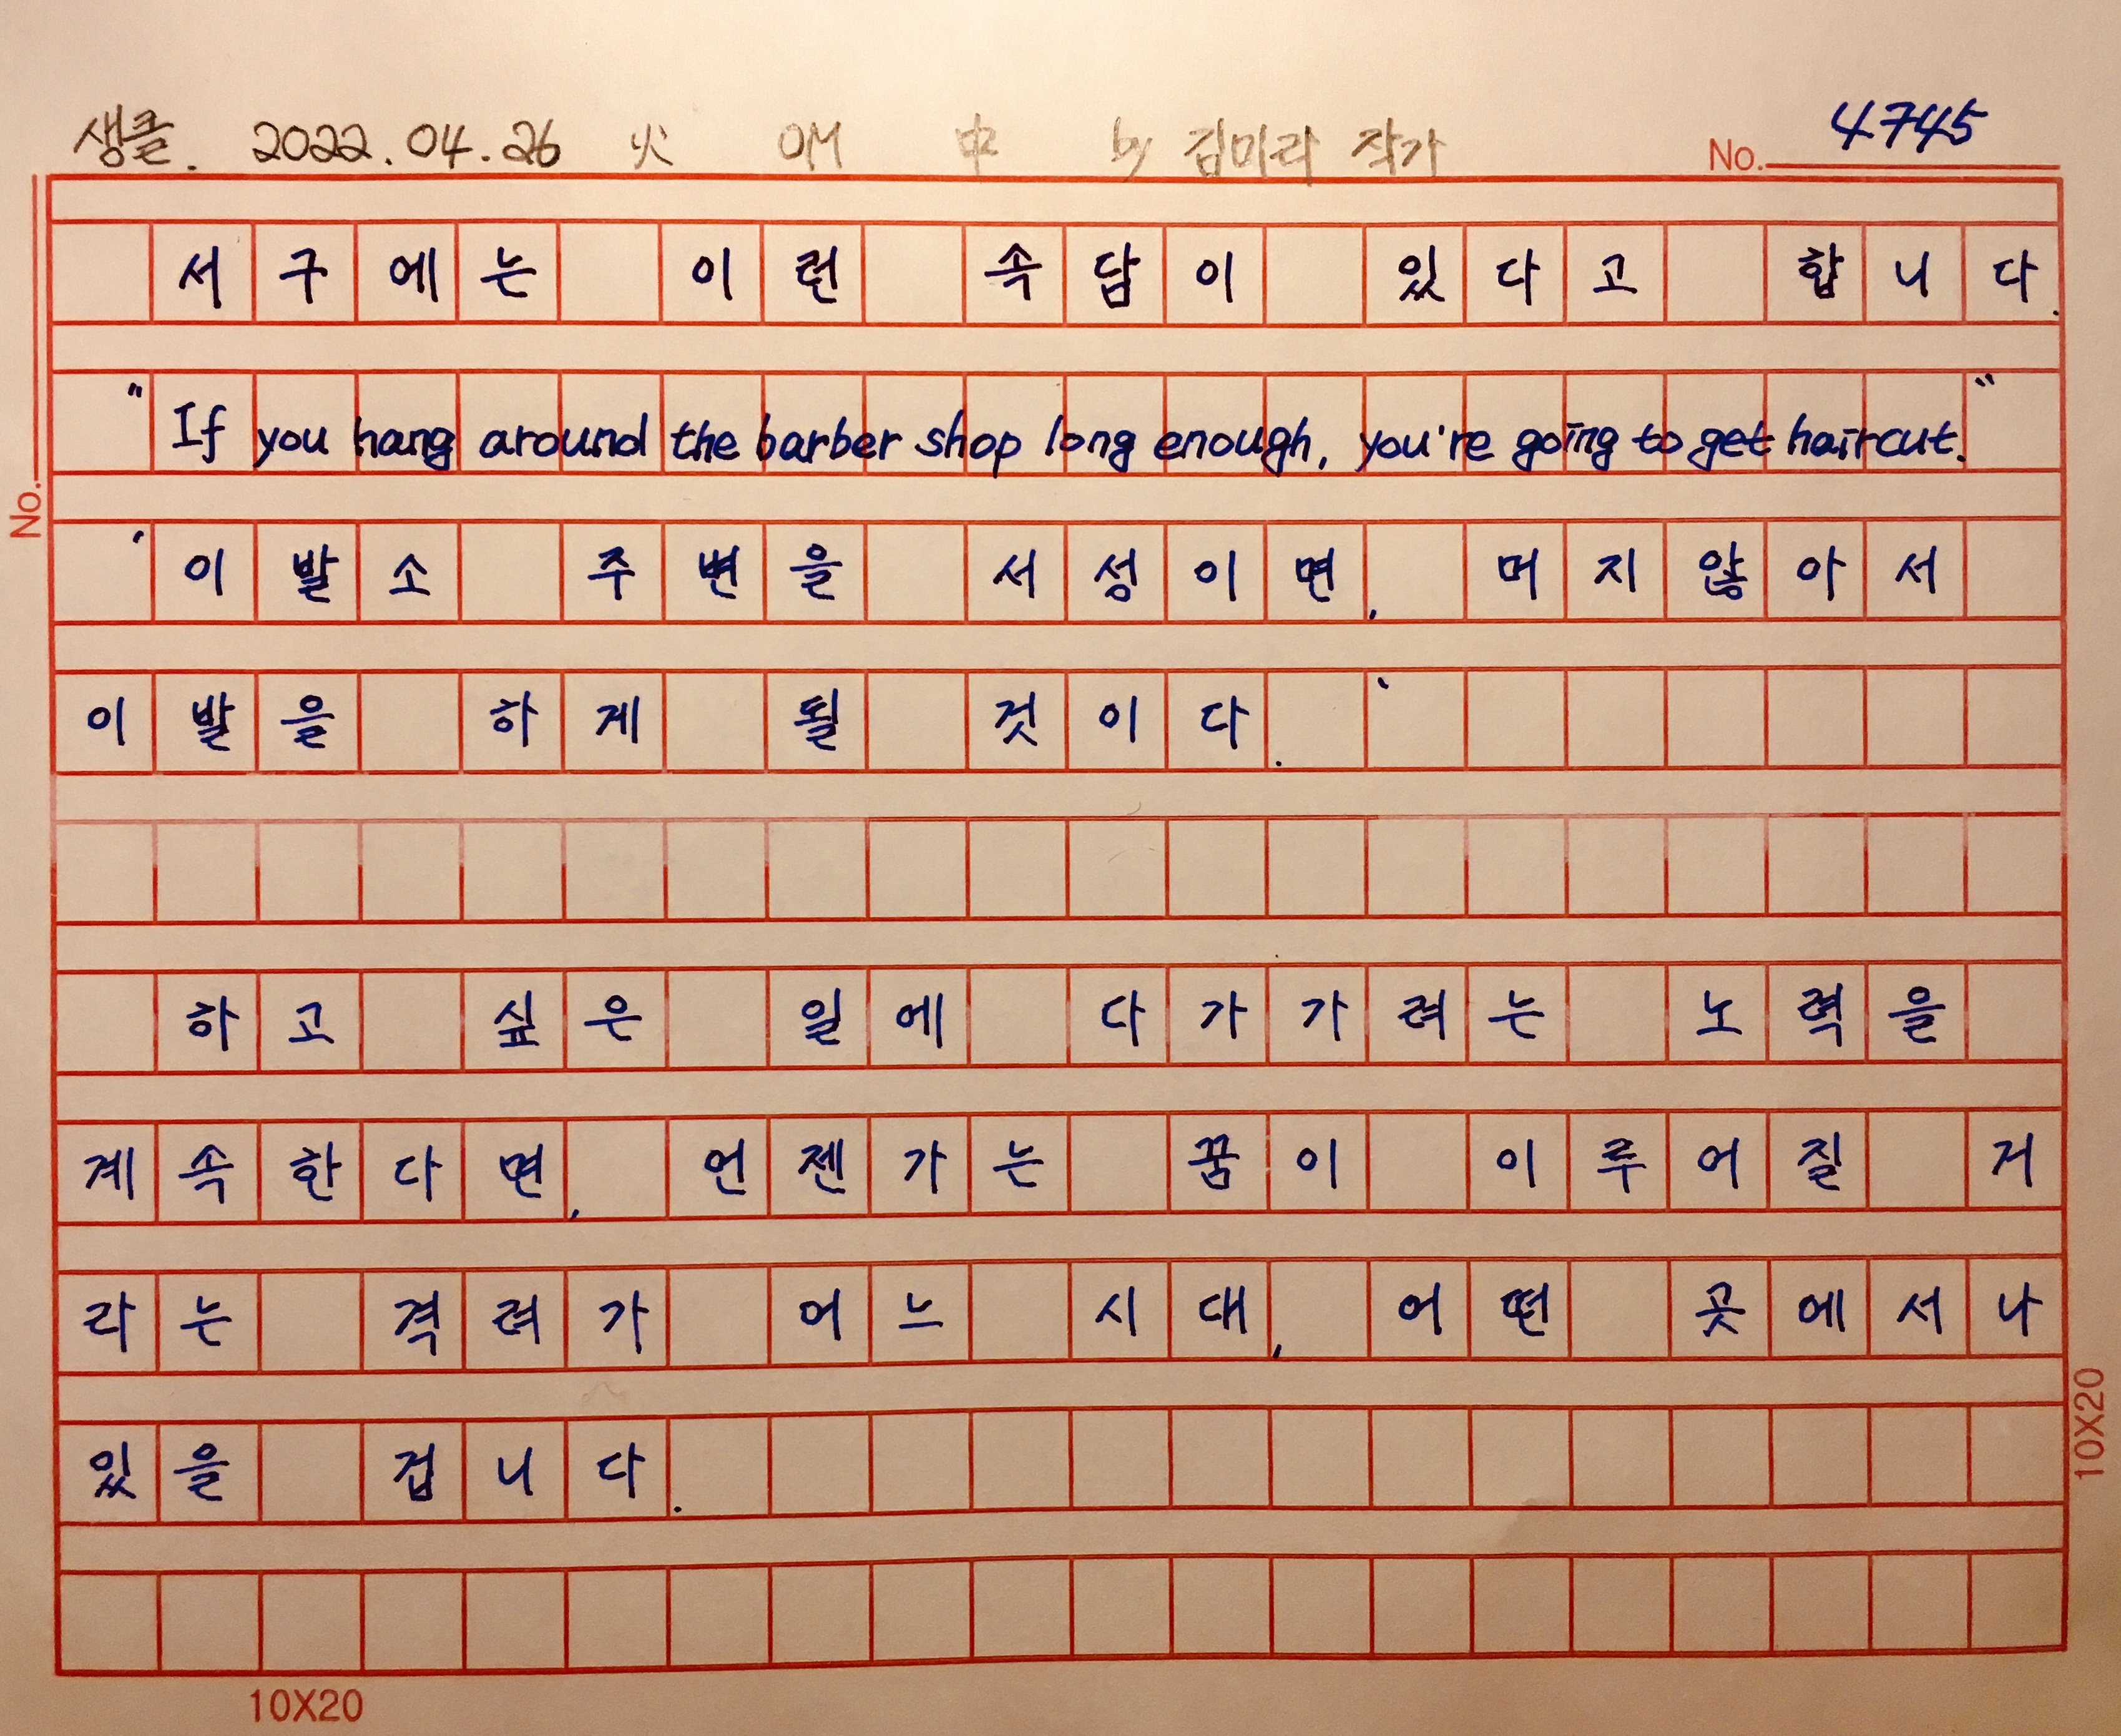 생클. 2022.04.26 火 OM 中 by 김미라 작가
No. 4745
서구에는 이런 속담이 있다고 합니다.
"If you hang around the barber shop long enough, you're going to get haircut."
'이발소 주변을 서성이면, 머지않아서
이발을 하게 될 것이다.'
하고 싶은 일에 다가가려는 노력을
계속한다면, 언젠가는 꿈이 이루어질 거
라는 격려가 어느 시대, 어떤 곳에서나
있을 겁니다.
No.
10X20
10X20